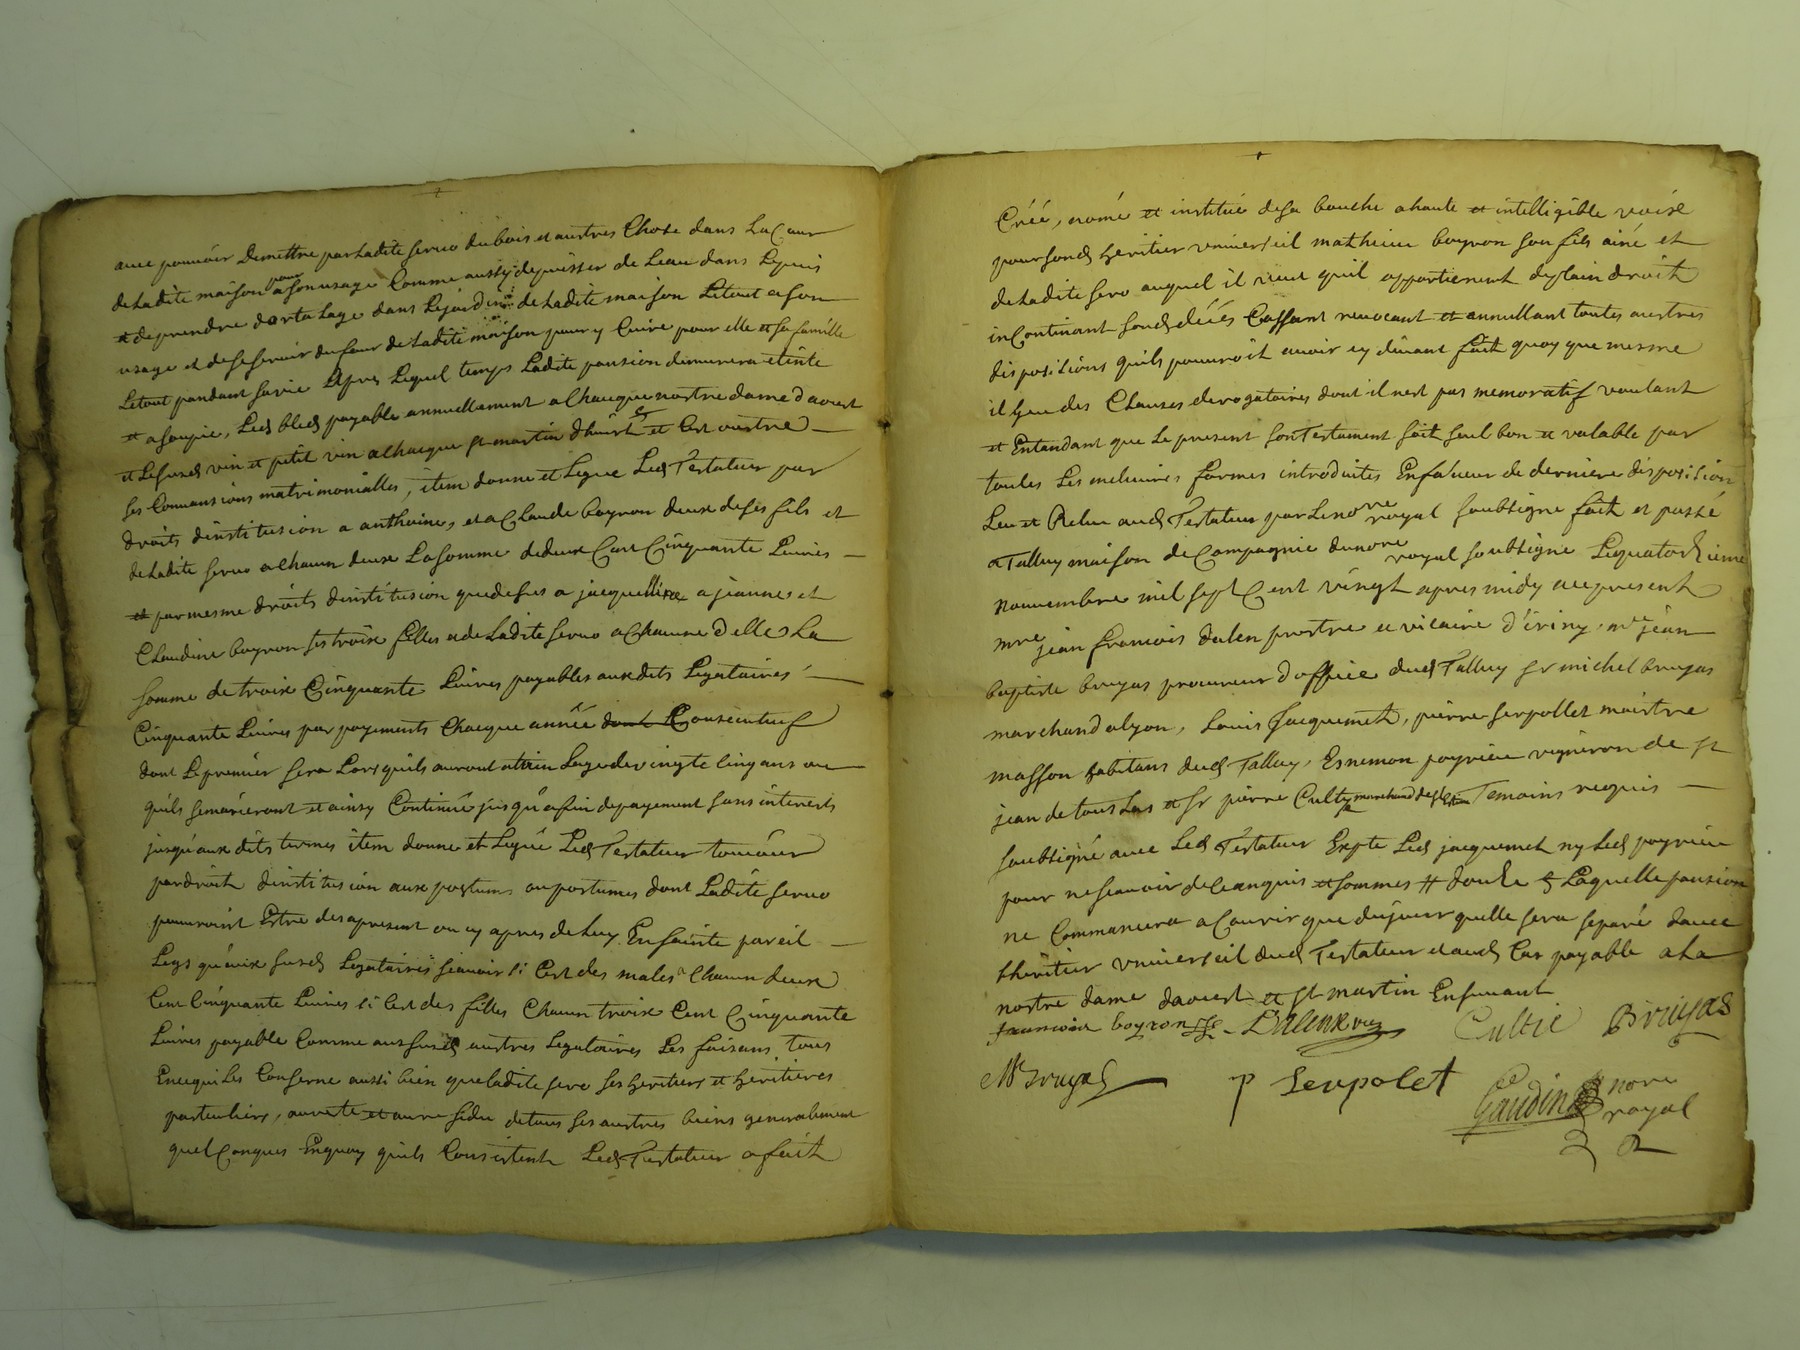 avec pouvoir Demettre par Ladite servo dubois et austres Chose dans La Cour
de Ladite maison pour a son usage Comme aussy depuisser de Leau dans Le puis
et de prendre dortolage dans Le jardin de Ladite maison Le tout a son
usage et de se servoir du four de Ladite maison pour y Cuire pour elle et sa famille
Le tout pandant sa vie Apres Lequel temps Ladite pansion demurera eteinte
et asoupie, Lesd bleds payable annuellement a Chacque nostre dame d'aoust
et Le susd vin et petit vin a Chacque st martin dhivert et Cest oustre
ses Convansions matrimonialles, item donne et Legue Led Testateur par
droits dinstitusion a anthoine, et a Claude boyron deux de ses fils et
de Ladite servo a Chacun deux La somme de deux Cent Cinquante Livres
et par mesme droits dinstitusion que desus a jacquelline a jeanne et
Claudine boyron ses troix filles et de Ladite servo a Chacune delles La
somme de troix Cinquante Livres payables aux dits Legataires
Cinquante Livres par payements Chacque année dont Consecutifs
dont Le premier sera Lors quils auront attin Lage de vingte cinq ans ou
quils se marieront et ainsy Continué jusqu'a fin de payement sans interests
jusqu'aux dits termes item donne et Legue Led Testateur toujour
par droit dinstitusion aux postums ou postumes dont Ladite servo
pouvroint Estre des apresent ou cy apres de Luy Ensainte pareil
Legs qu'aux susd Legataires scavoir si Cest des males a Chacun deux
Cent Cinquante Livres si Cest des filles Chacun troix Cent Cinquante
Livres payable Comme aux susd austres Legataires Les faisans tous
En ce qui Les Conserne aussi bien que Ladite servo ses heritiers et heritieres
particuliers, au reste et au residu de tous ses austres biens generalement
quelConques En quoy quils Consistent Led Testateur a fait
Créé, nomé et institué de sa bouche a haute et intelligible voix
pour son d heritier universeil mathieu boyron son fils ainé et
de Ladite servo auquel il veut quil appartienent de plain droit
inContinant son d décés Cassant revocant et annullant toutes austres
dispositions quils pouvroit avoir cy devant fait quoy que mesme
il y eu des Clauses derogatoires dont il nest pas memoratif voulant
et Entandant que Le present son Testament soit seul bon et valable par
toutes Les melieures formes introduites En faveur de derniere disposision
Leu et Releu aud Testateur par Le nore royal soubsigne fait et passé
a Talluy maison de Compagnie du nore royal soubsigne Le quatorzieme
nouvembre mil sept Cent vingt apres midy au present
mre jean francois dalen prestre et vicaire d'iriny, mr jean
baptiste bruyas procureur doffice dud Talluy sr michel bruyas
marchand a lyon, Louis Jacquemet, pierre serpollet maistre
masson habitans dud Talluy, Esnemon poyrieu vigneron de st
jean de tous Las et sr pierre Cultie marchand Temoins requis
soubsigné avec Led Testateur Expte Led jacquemet ny Led poyrieu
pour ne scavoir de Ce anquis et sommes # Laquelle pansion
ne Commancera a Courir que du jour quelle sera separé davec
Lheritier universeil dud Testateur et aud Cas payable a La
nostre dame daoust et st martin Ensuivant
francois boyron Dalenc vic Cultie Bruyas
M Bruyas P Serpolet Gaudin nore royal